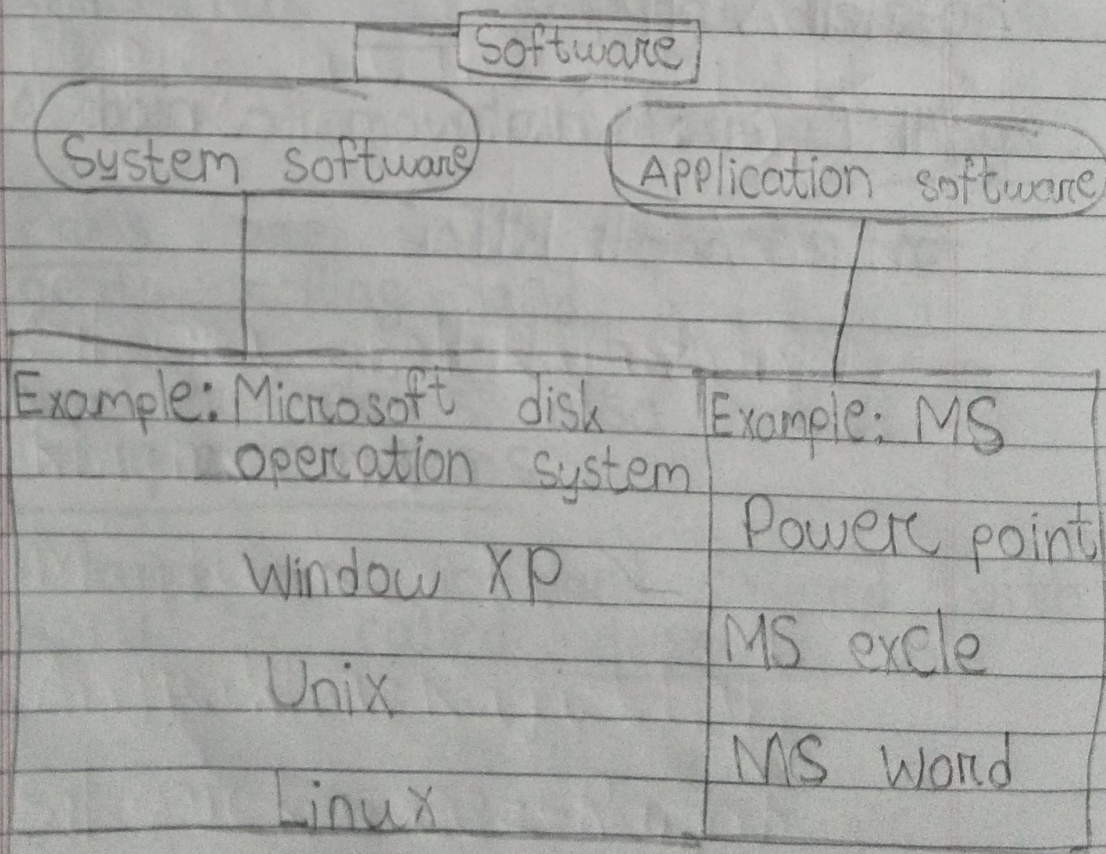 Software
System software
Application software
Example: Microsoft disk
operation system
Window XP
Unix
Linux
Example: MS
Power point
MS excle
MS Word